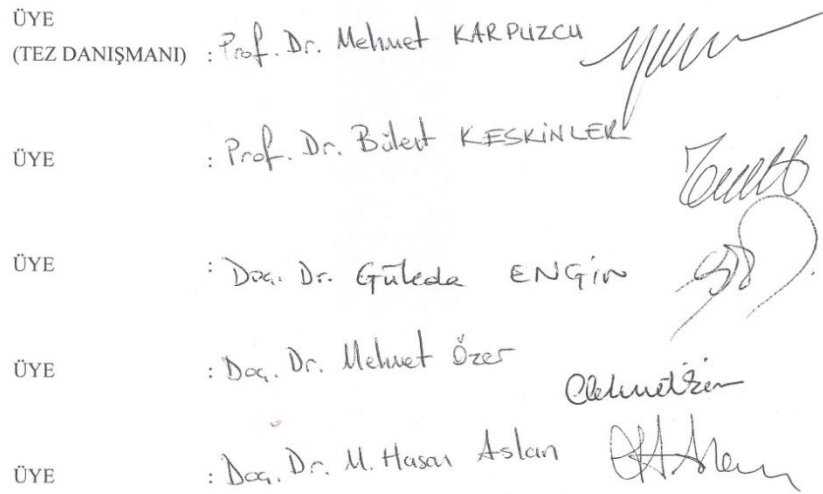 ÜYE
(TEZ DANIŞMANI) : Prof. Dr. Mehmet KARPUZCU
ÜYE : Prof. Dr. Bülent KESKİNLER
ÜYE : Doç. Dr. Güleda ENGİN
ÜYE : Doç. Dr. Mehmet Özer
ÜYE : Doç. Dr. M. Hasan Aslan